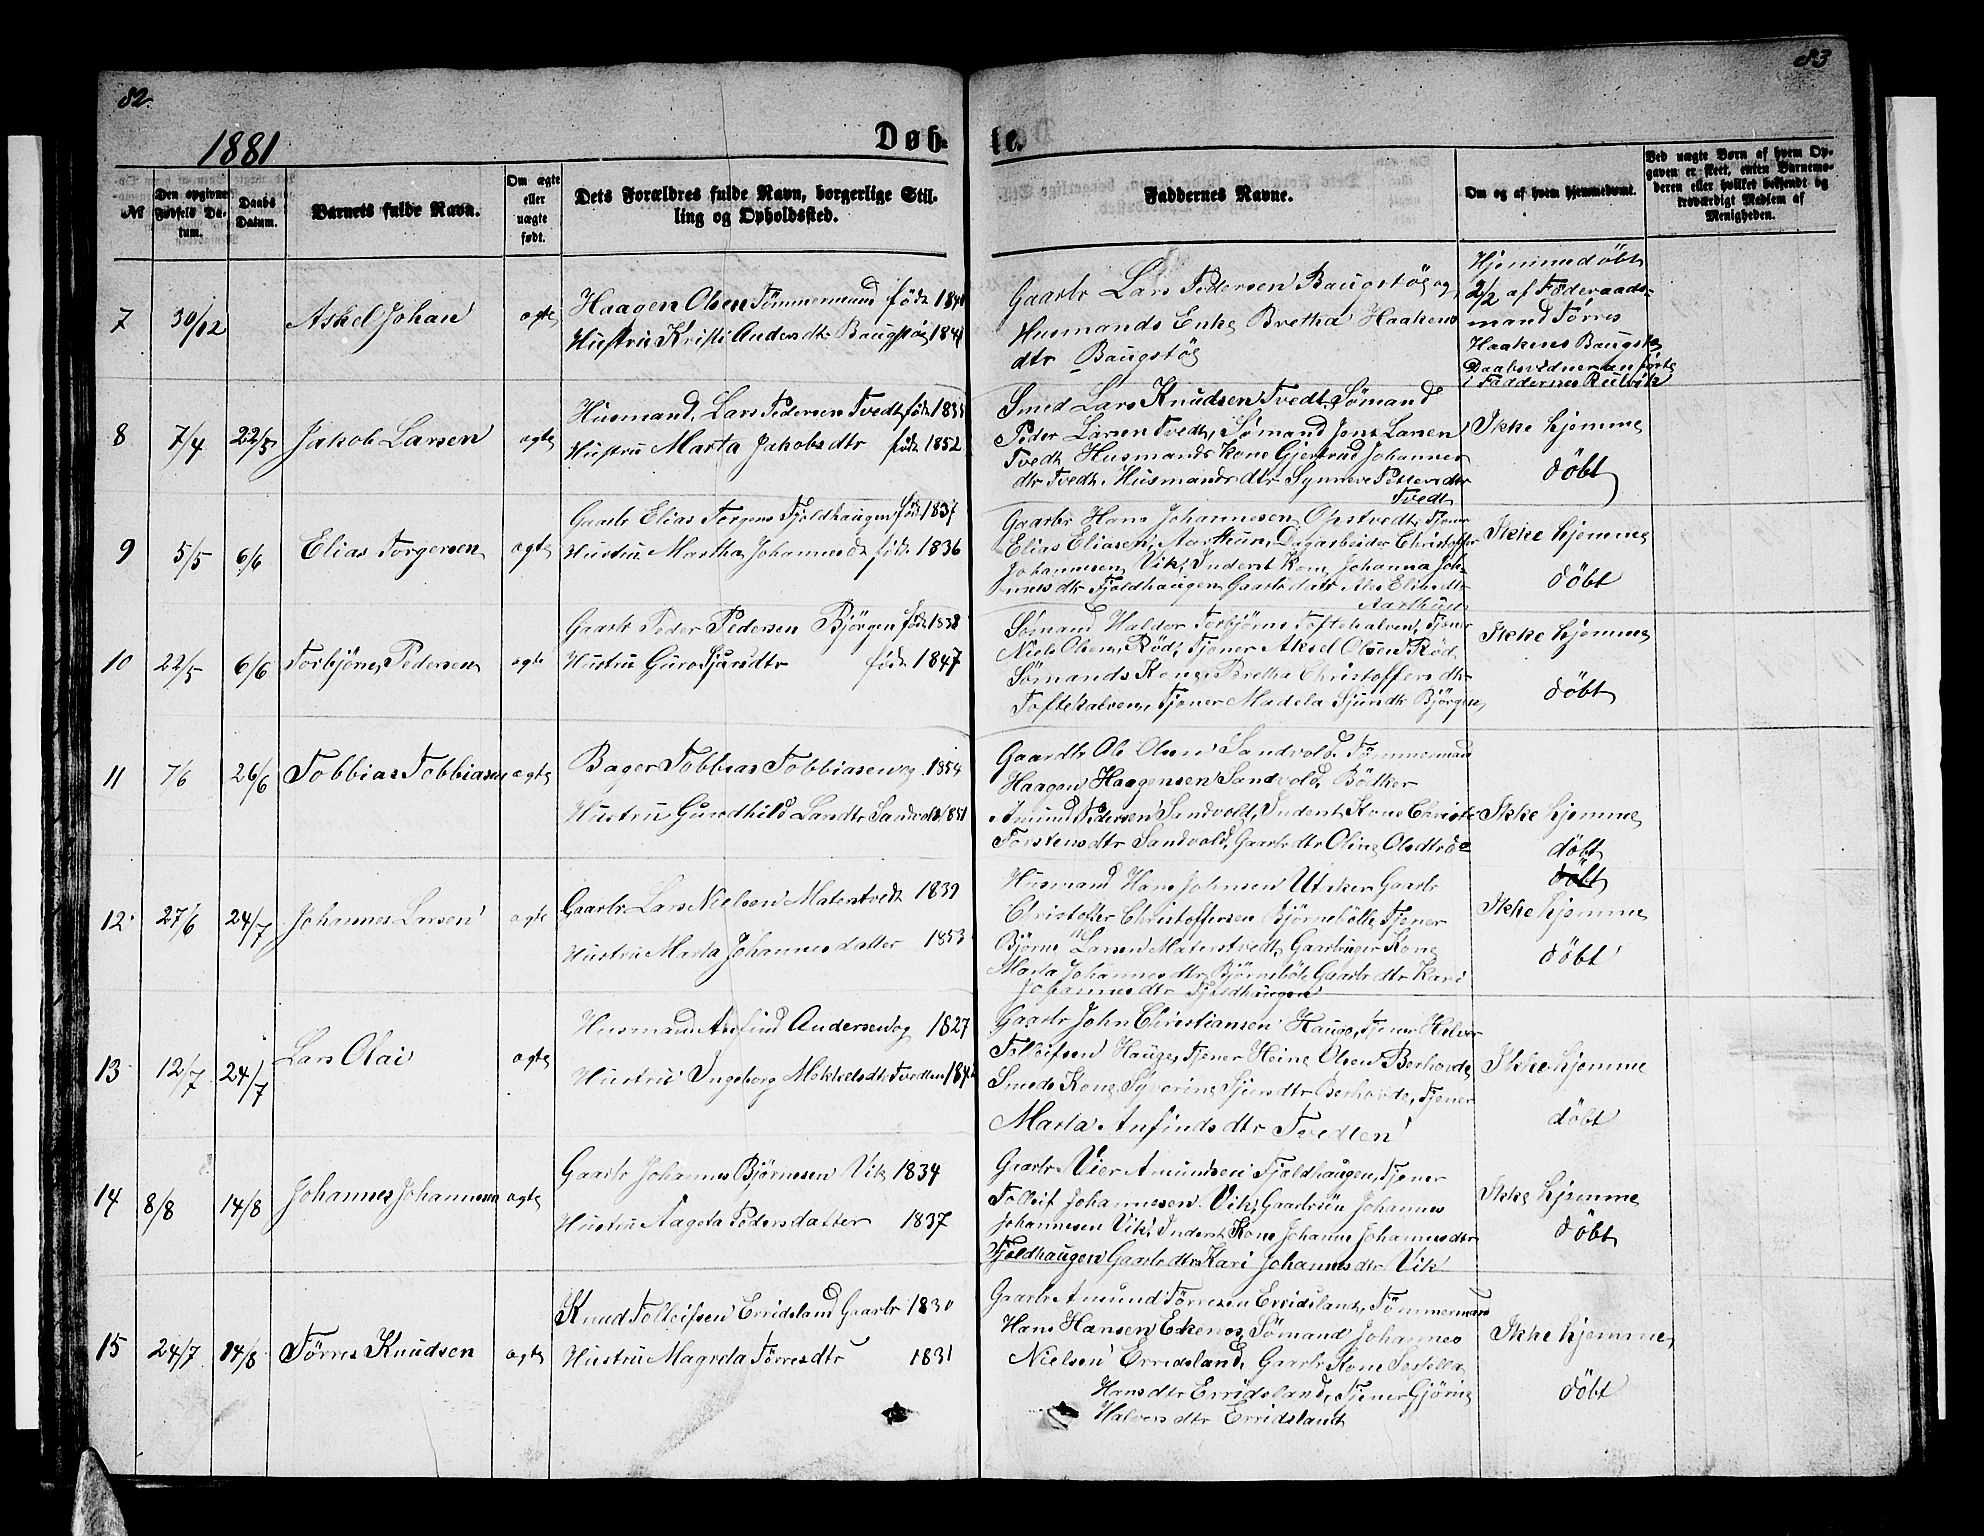 82
83
1881
Døb-
te.
№
Den opgivne Fødsels Datum.
Daabs Datum.
Barnets fulde Navn.
Om ægte eller uægte født.
Dets Forældres fulde Navn, borgerlige Stilling og Opholdssted.
Faddernes Navne.
Om og af hvem hjemmedøbt.
Ved uægte Børn af hvem Opgaven er skeet, enten Barnemoderen eller hvilket bekjendt og troværdigt Medlem af Menigheden.
7
30/12
Askel Johan
ægte
Haagen Olsen Tömmermand född
Hustru Kristi Andersdtr Baugstög
Gaarbr Lars Pedersen Baugstög og
Husmands Enke Bretha Haakens
dtr Baugstög
Hjemmedöbt
2/2 af Föderaads-
mand Törres
Haakens Baugstög
Daabsvidner anförte
i Faddernes Rubrik
8
7/4
22/5
Jakob Larsen
ægte
Husmand Lars Pedersen Tvedt, född
Hustru Marta Jakobsdtr född 1852
Smed Lars Knudsen Tvedt, Sömand
Peder Larsen Tvedt, Sömand Jens Larsen
Tvedt, Husmands Kone Gjertrud Johannes
dtr Tvedt, Husmands dtr Synneve Pettersdtr
Tvedt
Ikke hjemme
döbt
9
5/5
6/6
Elias Torgersen
ægte
Gaarbr Elias Torgens Fjoldhaugen föd 1837
Hustru Martha Johannesdtr föd 1836
Gaarbr Hans Johannesen Opstvedt, Tjener
Elias Eliasen, Aarhuus, Dagarbeider Christoffer
Johannesen Vik, Inderst Kone Johanna Joh-
nnesdtr Fjoldhaugen, Gaarbr datr Eliasdtr
Aarthuus
Ikke hjemme
döbt
10
22/5
6/6
Torbjörn Pedersen
ægte
Gaarbr Peder Pedersen Björgen född 1838
Hustru Guro Sjursdtr född 1847
Sömand Haldor Torbjörns Toftekalven, Tjener
Niels Olsen Röd, Tjener Aksel Olsen Röd
Sömands Kone, Bretha Christoffersdtr
Toftekalven, Tjener Madela Sjursdtr Björgen
Ikke hjemme
döbt
11
7/6
26/6
Tobbias Tobbiasen
ægte
Bager Tobbias Tobbiasen og 1854
Hustru Gundhild Larsdtr Sandvold 1851
Gaardbr Ole Olsen Sandvold, Tömmermand
Haagen Haagensen Sandvold, Bödker
Amund Pedersen Sandvold, Inderst Kone Christi
Torstensdtr Sandvold, Gaarbr dtr Oline Olsdtr
Ikke hjemme
döbt
döbt
12
27/6
24/7
Johannes Larsen
ægte
Gaarbr Lars Nielsen Materstvedt 1839
Hustru Marta Johannesdatter 1853
Husmand Hans Johnsen Utaker Gaarbr
Christoffer Christoffersen Björnebölle, Tjener
Björne Larsen Materstvedt, Gaarbruger Kone
Marta Johannesdtr Björneböle Gaarbr dtr Kari
Johannesdtr Fjeldhaugen
Ikke hjemme
döbt
13
12/7
24/7
Lars Olai
ægte
Husmand Anfind Andersen og 1827
Hustru Ingeborg Mekkelsdtr Tvedten
Gaarbr John Christiansen Hauge, Tjener Halvor
Tolleifsen Hauge, Tjener Heine Olsen Berhovde
Smeds Kone Syverine Sjursdtr Berhovde, Tjener
Marta Anfindsdtr Tvedten
Ikke hjemme
döbt
14
8/8
14/8
Johannes Johannesen
ægte
Gaarbr Johannes Björnesen Vik 1834
Hustru Aageta Pedersdatter 1837
Gaarbr Vier Amundsen Fjoldhaugen, Tjener
Tolleif Johannesen Vik, Gaarbrsön Johannes
Johannesen Vik, Inderst Kone Johanne Johannesdtr
Fjoldhaugen Gaarbr dtr Kari Johannesdtr Vik
Ikke hjemme
döbt
15
24/7
14/8
Törres Knudsen
ægte
Knud Tolleifsen Erridsland Gaarbr 1830
Hustru Magreta Törresdtr 1831
Gaarbr Amund Törresen Erridsland, Tömmermand
Hans Hansen Ekenes, Sömand Johannes
Nielsen Erridsland, Gaarbr Kone
Hansdtr Erridsland, Tjener Gjörine
Halvorsdtr Erridsland
Ikke hjemme
döbt